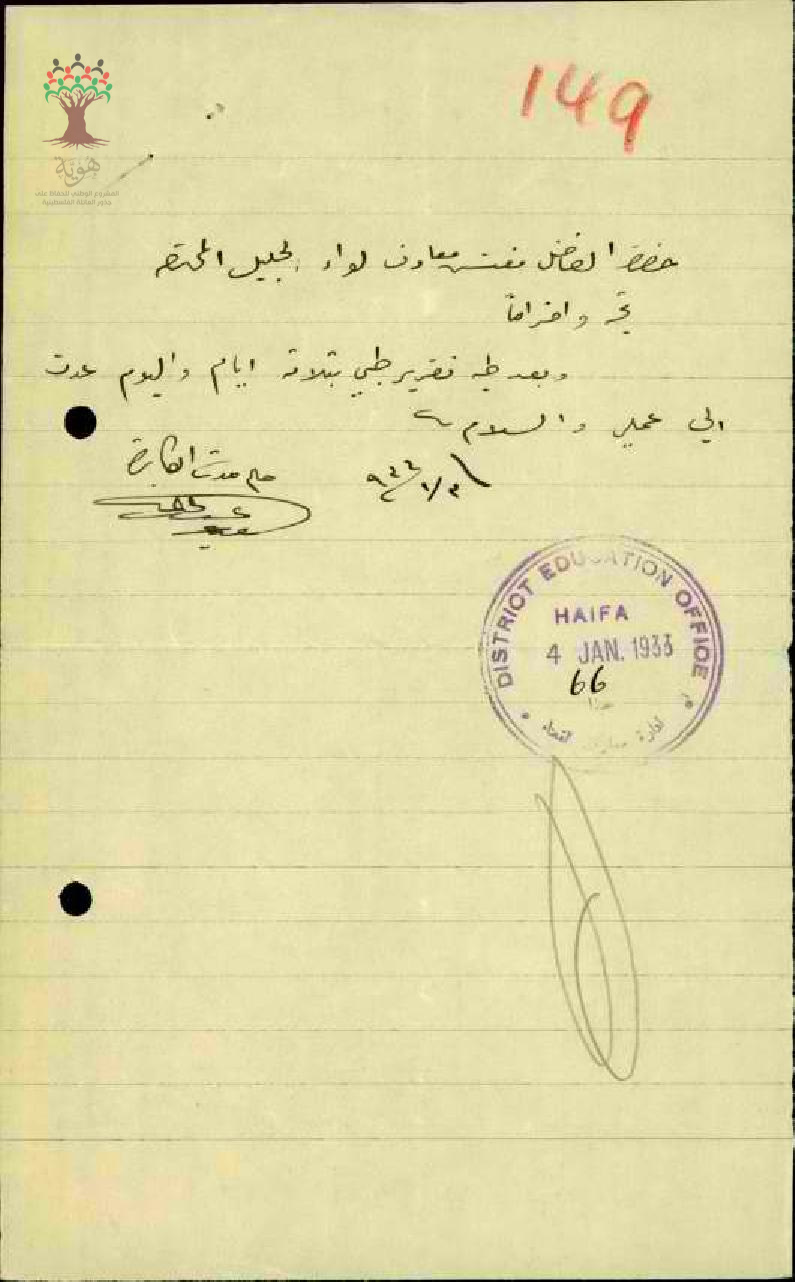 149
هوية
المشروع الوطني للحفاظ على
جذور العائلة الفلسطينية
حضرة الفاضل مفتش معارف لواء الجليل المحترم
تحية واحتراماً
وبعد طيه تقرير طبي بثلاثة ايام واليوم عدت
الى عملي والسلام
معلم مدرسة الكابرة
DISTRICT EDUCATION OFFICE
HAIFA
4 JAN. 1933
66
ادارة معارف